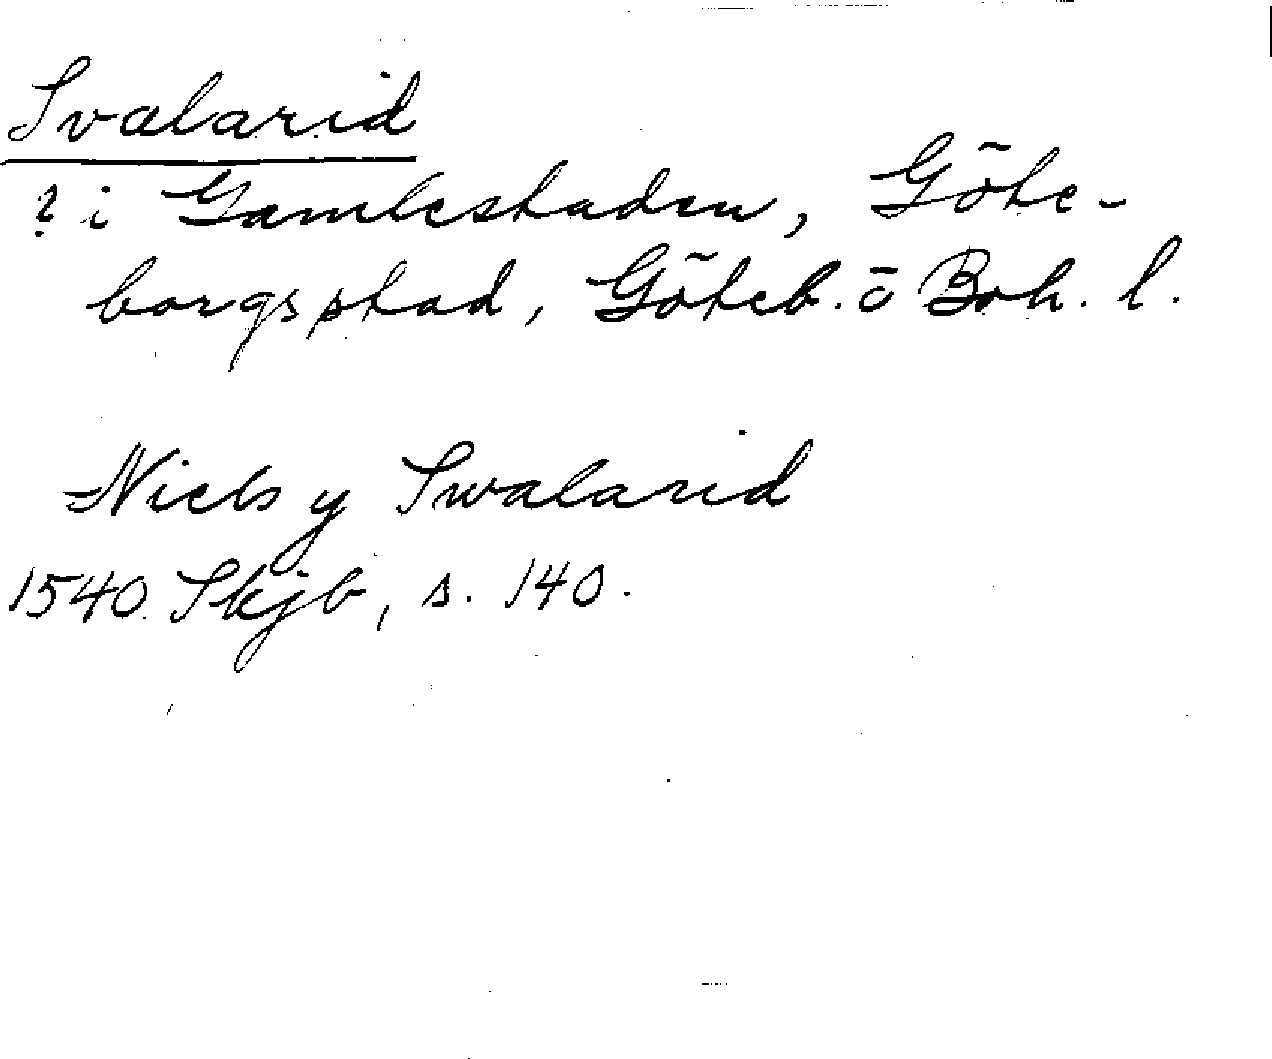 Svalarid
? i Gamlestaden, Göte-
borgs stad, Göteb. o Boh. l.
Niels y Swalarid
1540 Skjb, s. 140.